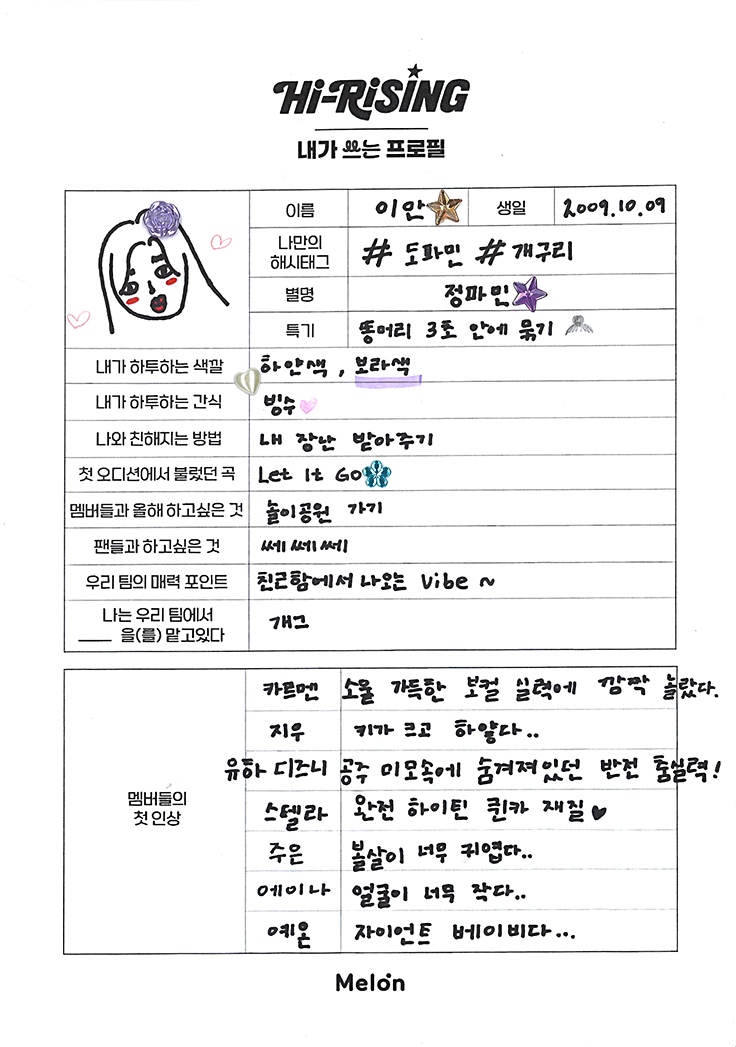 Hi-RiSiNG
내가 쓰는 프로필
이름 이안 생일 2009.10.09
나만의
해시태그 # 도파민 # 개구리
별명 정파민
특기 똥머리 3초 안에 묶기
내가 하투하는 색깔 하얀색, 보라색
내가 하투하는 간식 빙수
나와 친해지는 방법 내 장난 받아주기
첫 오디션에서 불렀던 곡 Let It Go
멤버들과 올해 하고싶은 것 놀이공원 가기
팬들과 하고싶은 것 쎄쎄쎄
우리 팀의 매력 포인트 친근함에서 나오는 Vibe ~
나는 우리 팀에서
____ 을(를) 맡고있다 개그
멤버들의
첫 인상
카르멘 소울 가득한 보컬 실력에 깜짝 놀랐다.
지우 키가 크고 하얗다..
유하 디즈니 공주 미모속에 숨겨져있던 반전 춤실력!
스텔라 완전 하이틴 퀸카 재질♥
주은 볼살이 너무 귀엽다..
에이나 얼굴이 너무 작다..
예온 자이언트 베이비다...
Melon